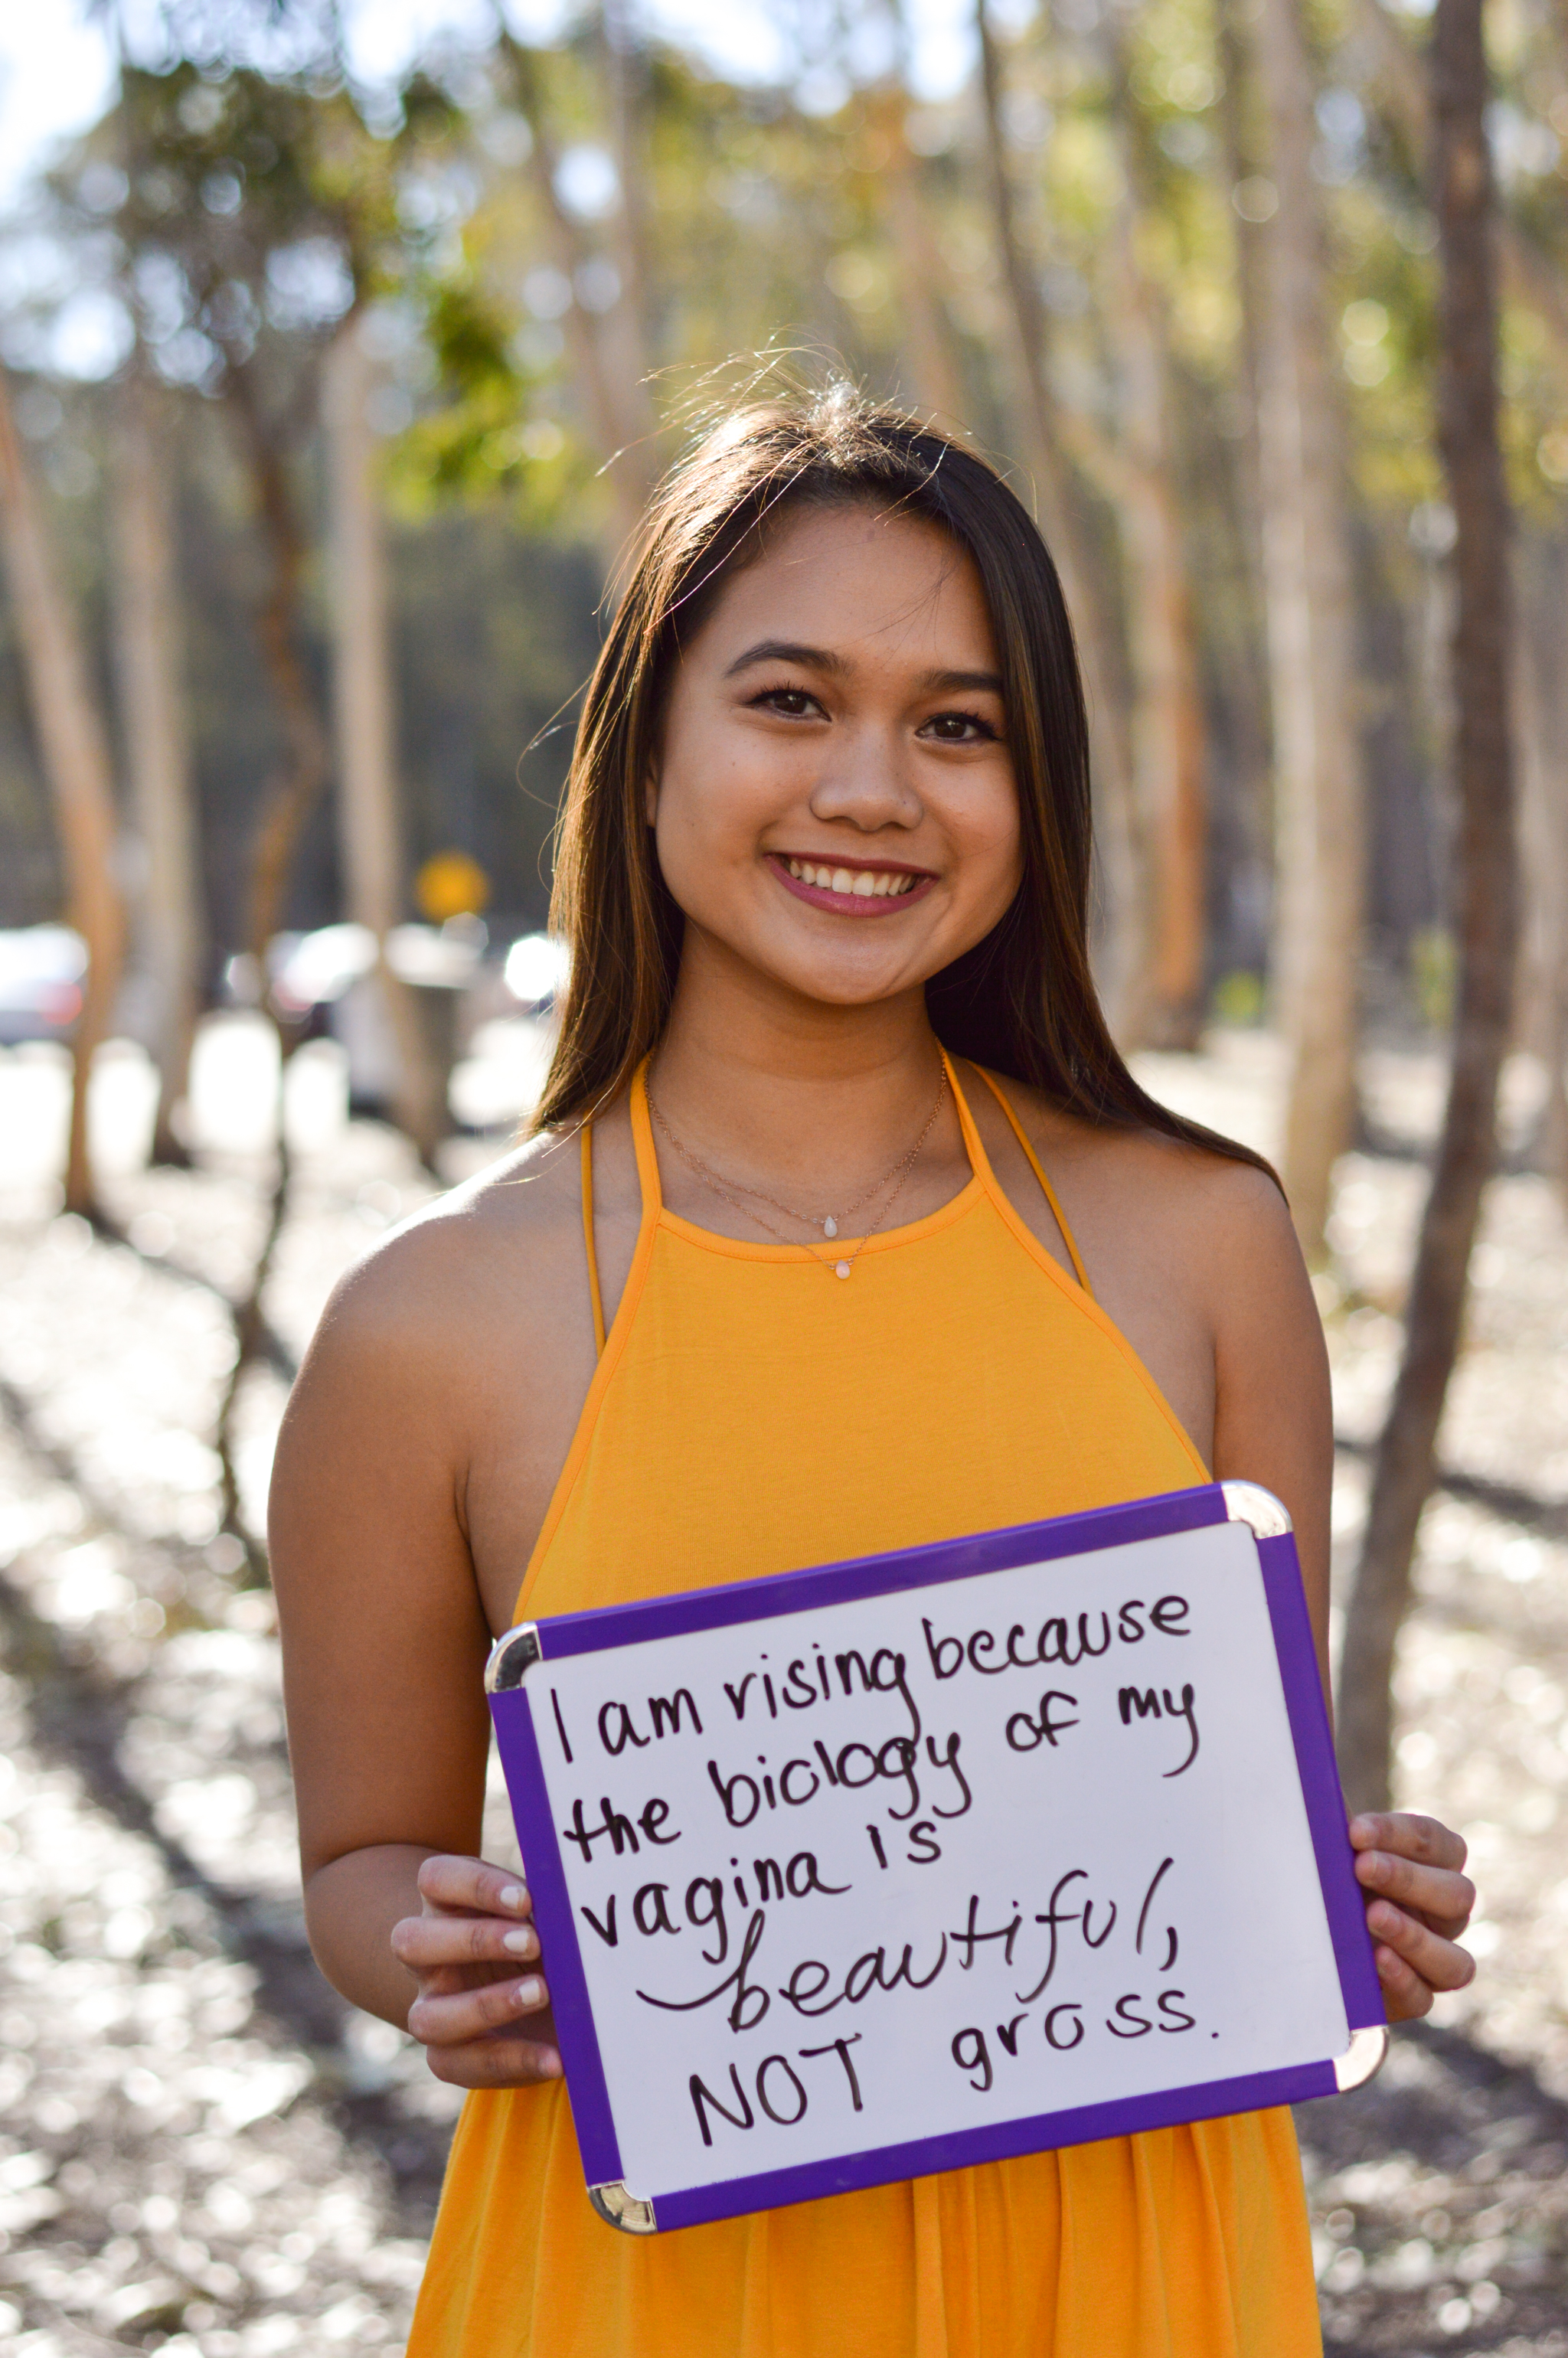 I am rising because
the biology of my
vagina is
beautiful,
NOT gross.